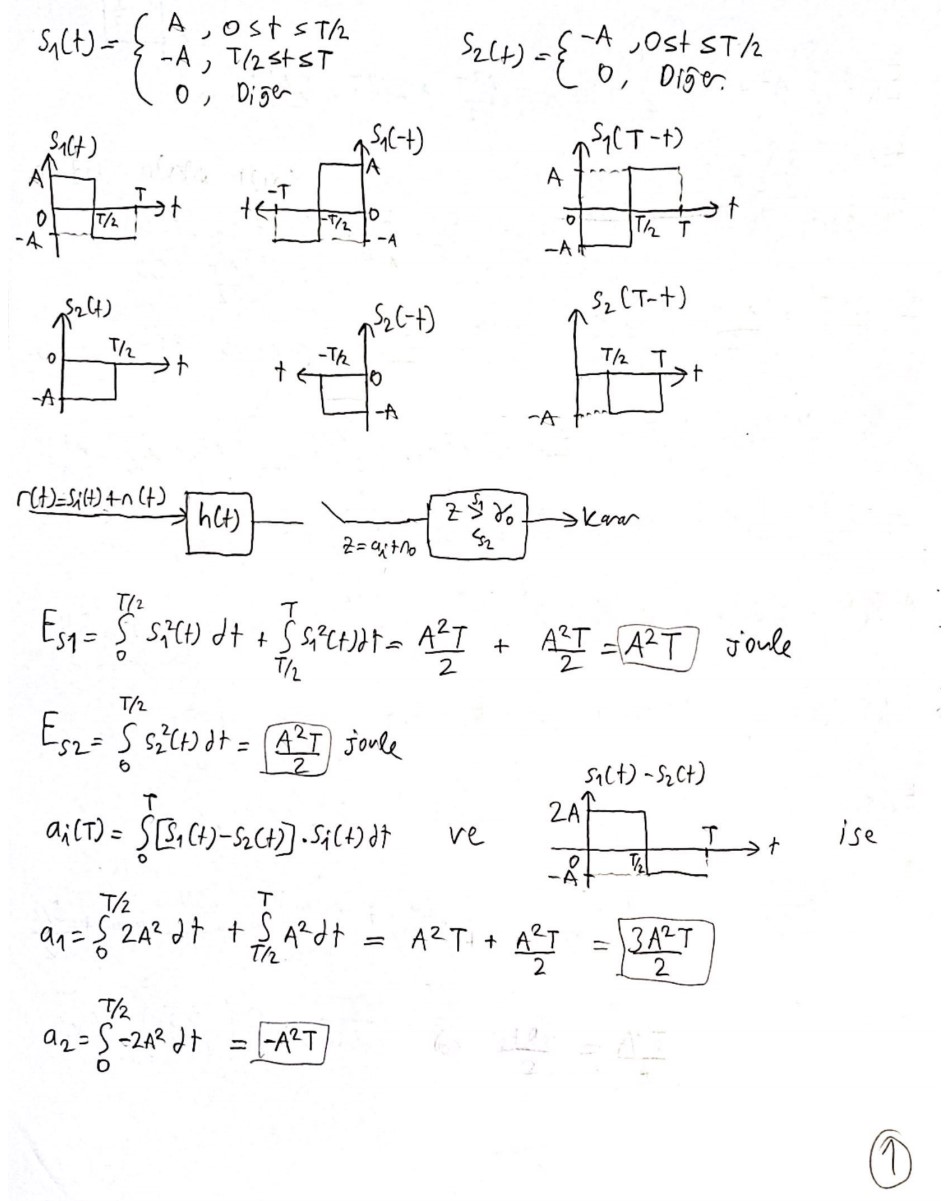 S₁(t) = { A , 0≤t≤T/2
-A , T/2≤t≤T
0 , Diğer
S₂(t) = { -A , 0≤t≤T/2
0 , Diğer.
S₁(t)
A
0
-A
T/2
T
t
S₁(-t)
A
t
-T
-T/2
0
-A
S₁(T-t)
A
0
T/2
T
t
-A
S₂(t)
0
T/2
t
-A
S₂(-t)
t
-T/2
0
-A
S₂(T-t)
T/2
T
t
-A
r(t)=Sᵢ(t)+n(t)
h(t)
z=aᵢ+n₀
z ≷ γ₀
S₁
S₂
Karar
E_S1 = ∫₀^{T/2} S₁²(t) dt + ∫_{T/2}^{T} S₁²(t)dt = A²T/2 + A²T/2 = A²T joule
E_S2 = ∫₀^{T/2} S₂²(t) dt = A²T/2 joule
aᵢ(T) = ∫₀^{T} [S₁(t)-S₂(t)].Sᵢ(t)dt ve
S₁(t)-S₂(t)
2A
0
-A
T/2
T
t
ise
a₁ = ∫₀^{T/2} 2A² dt + ∫_{T/2}^{T} A²dt = A²T + A²T/2 = 3A²T/2
a₂ = ∫₀^{T/2} -2A² dt = -A²T
1